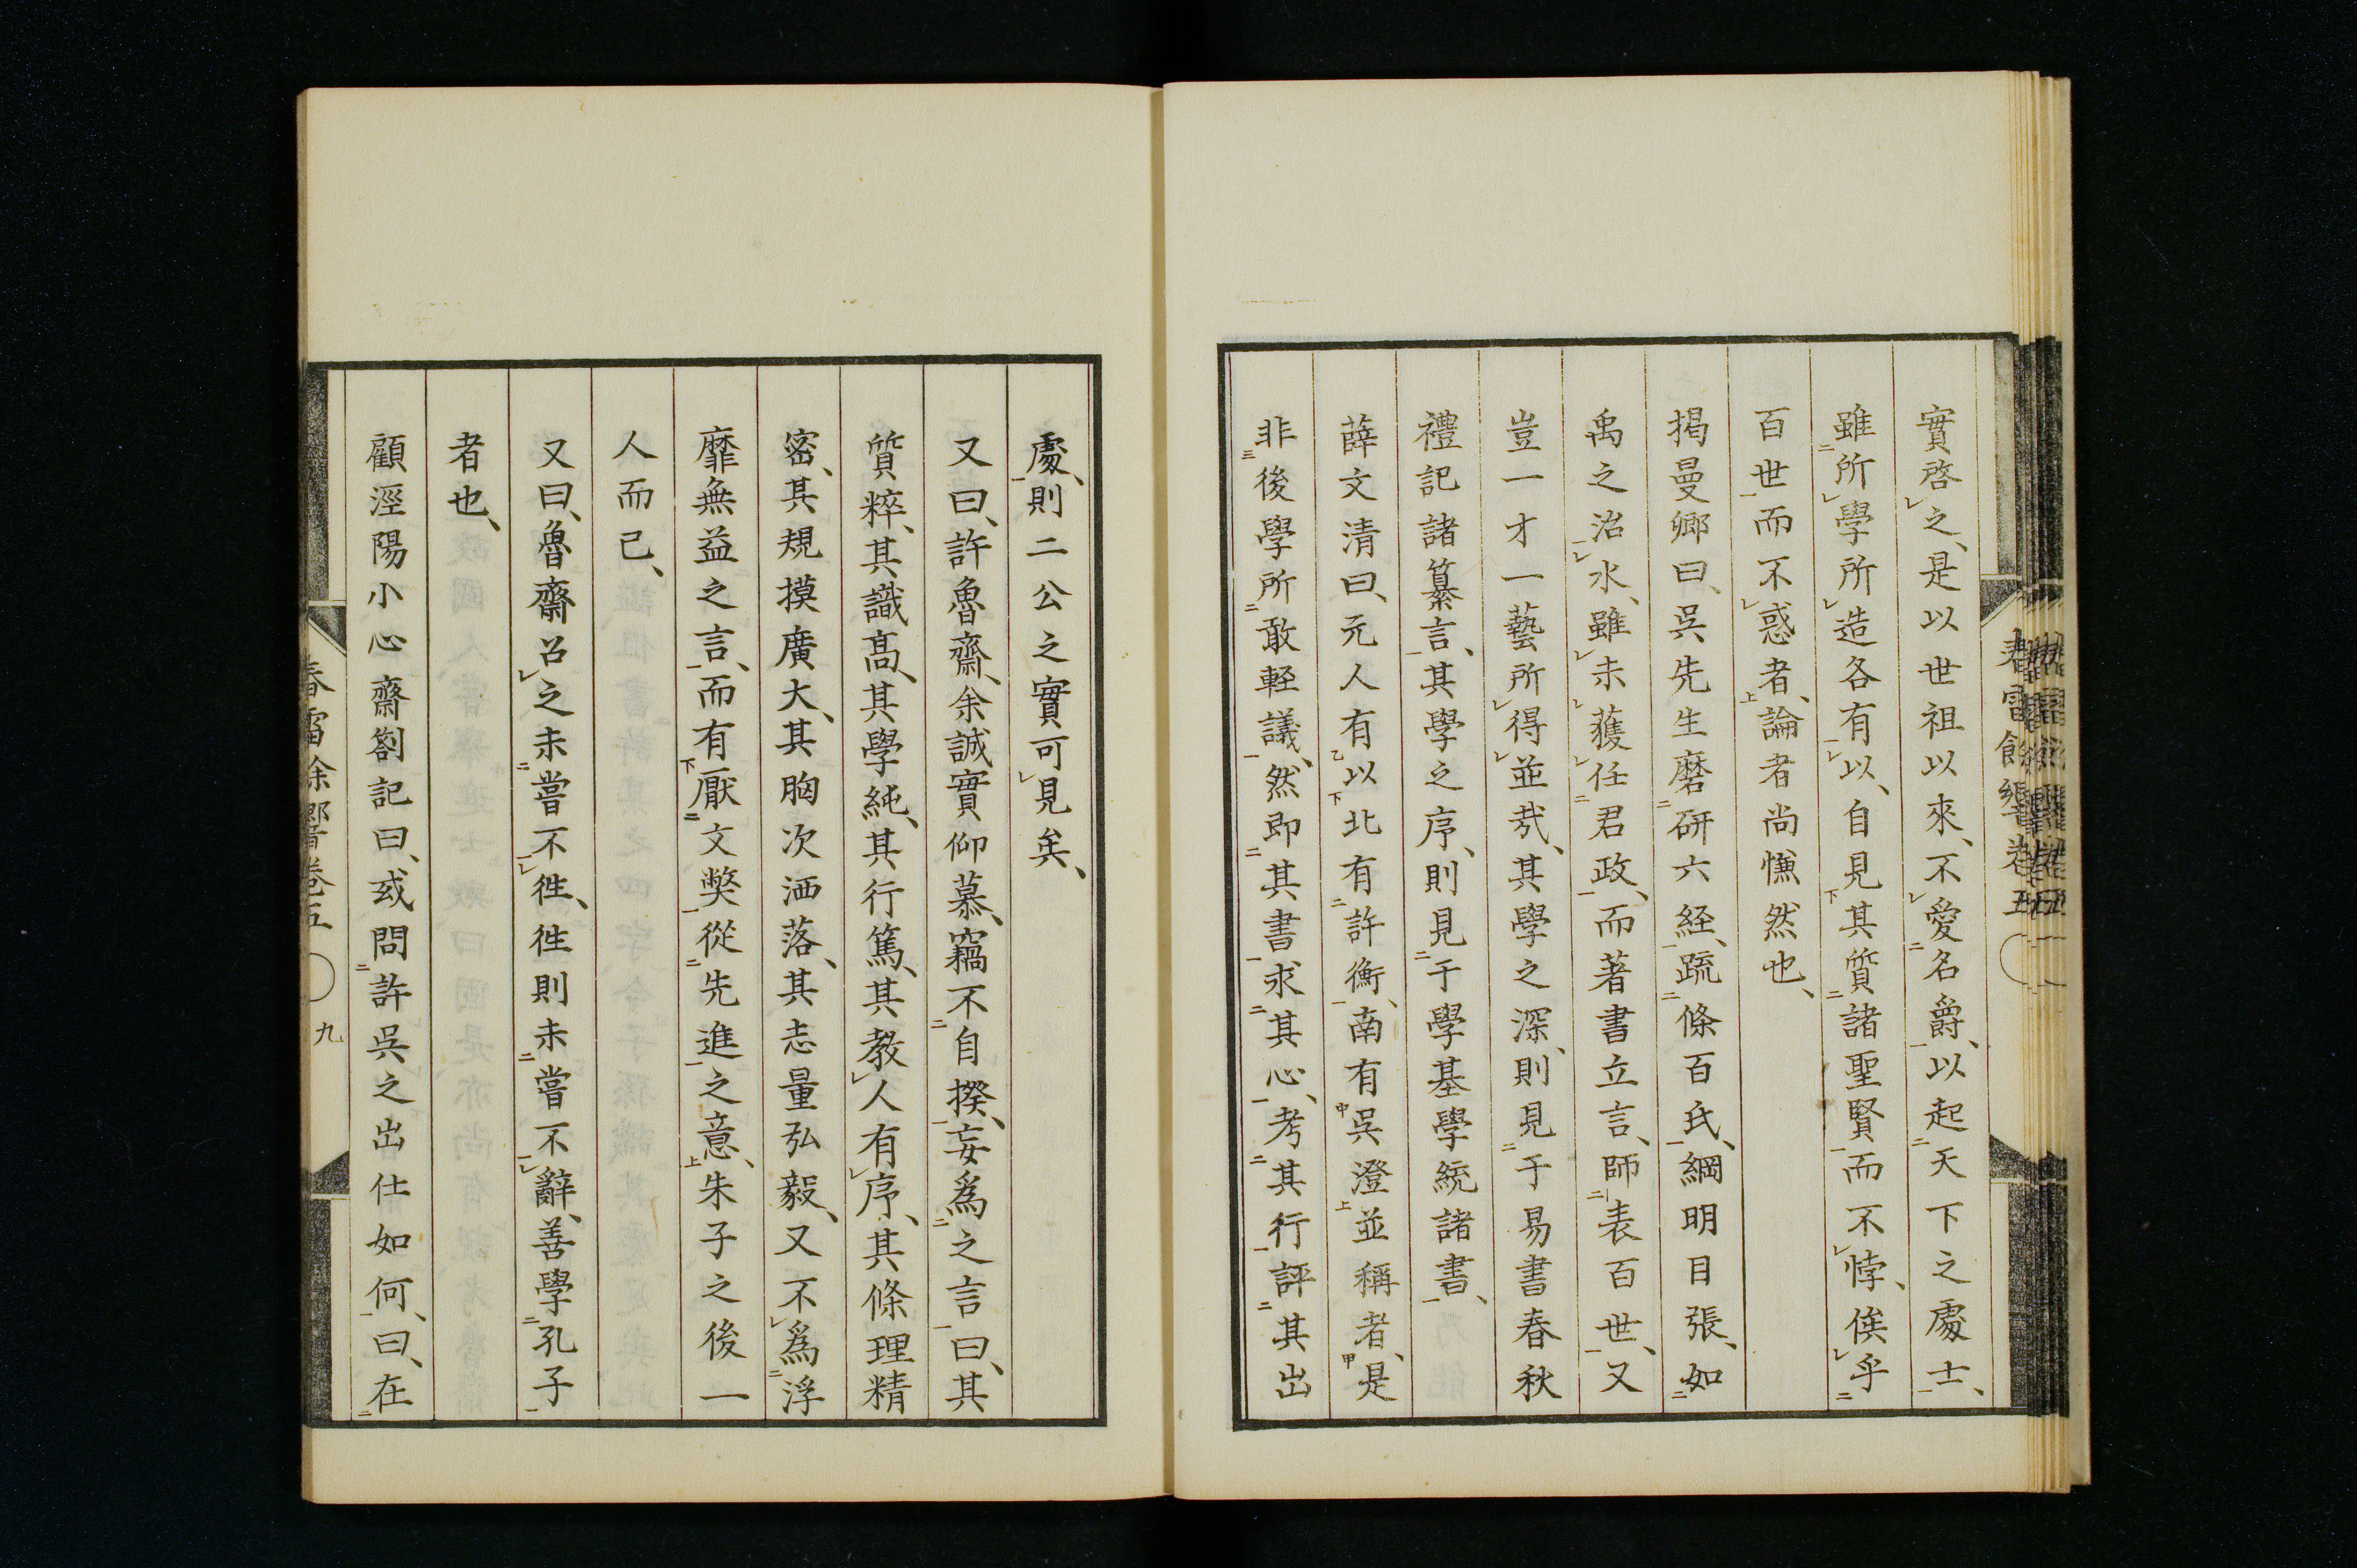 實啓之、是以世祖以來、不愛名爵、以起天下之處士、
雖所學所造各有以、自見其質諸聖賢而不悖、俟乎
百世而不惑者、論者尚慊然也、
揭曼鄉曰、吳先生磨研六経、疏條百氏、綱明目張、如
禹之治水、雖未獲任君政、而著書立言、師表百世、又
豈一才一藝所得並㢤、其學之深、則見于易書春秋
禮記諸纂言、其學之序、則見于學基學統諸書、
薛文清曰、元人有以北有許衡、南有吳澄並稱者、是
非後學所敢輕議、然即其書求其心、考其行評其出
處、則二公之實可見矣、
又曰、許魯齋、余誠實仰慕、竊不自揆、妄爲之言曰、其
質粹、其識高、其學純、其行篤、其教人有序、其條理精
密、其規摸廣大、其胸次洒落、其志量弘毅、又不爲浮
靡無益之言、而有厭文獘從先進之意、朱子之後一
人而已、
又曰、魯齋召之未嘗不徃、徃則未嘗不辭、善學孔子
者也、
顧涇陽小心齋劄記曰、或問許吳之出仕如何、曰、在
春雷餘響卷五 九